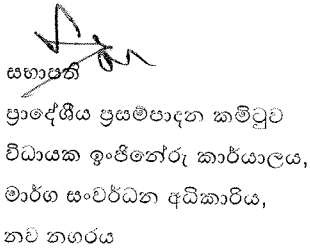 සභාපති
ප්‍රාදේශීය ප්‍රසම්පාදන කමිටුව
විධායක ඉංජිනේරු කාර්යාලය,
මාර්ග සංවර්ධන අධිකාරිය,
නව නගරය